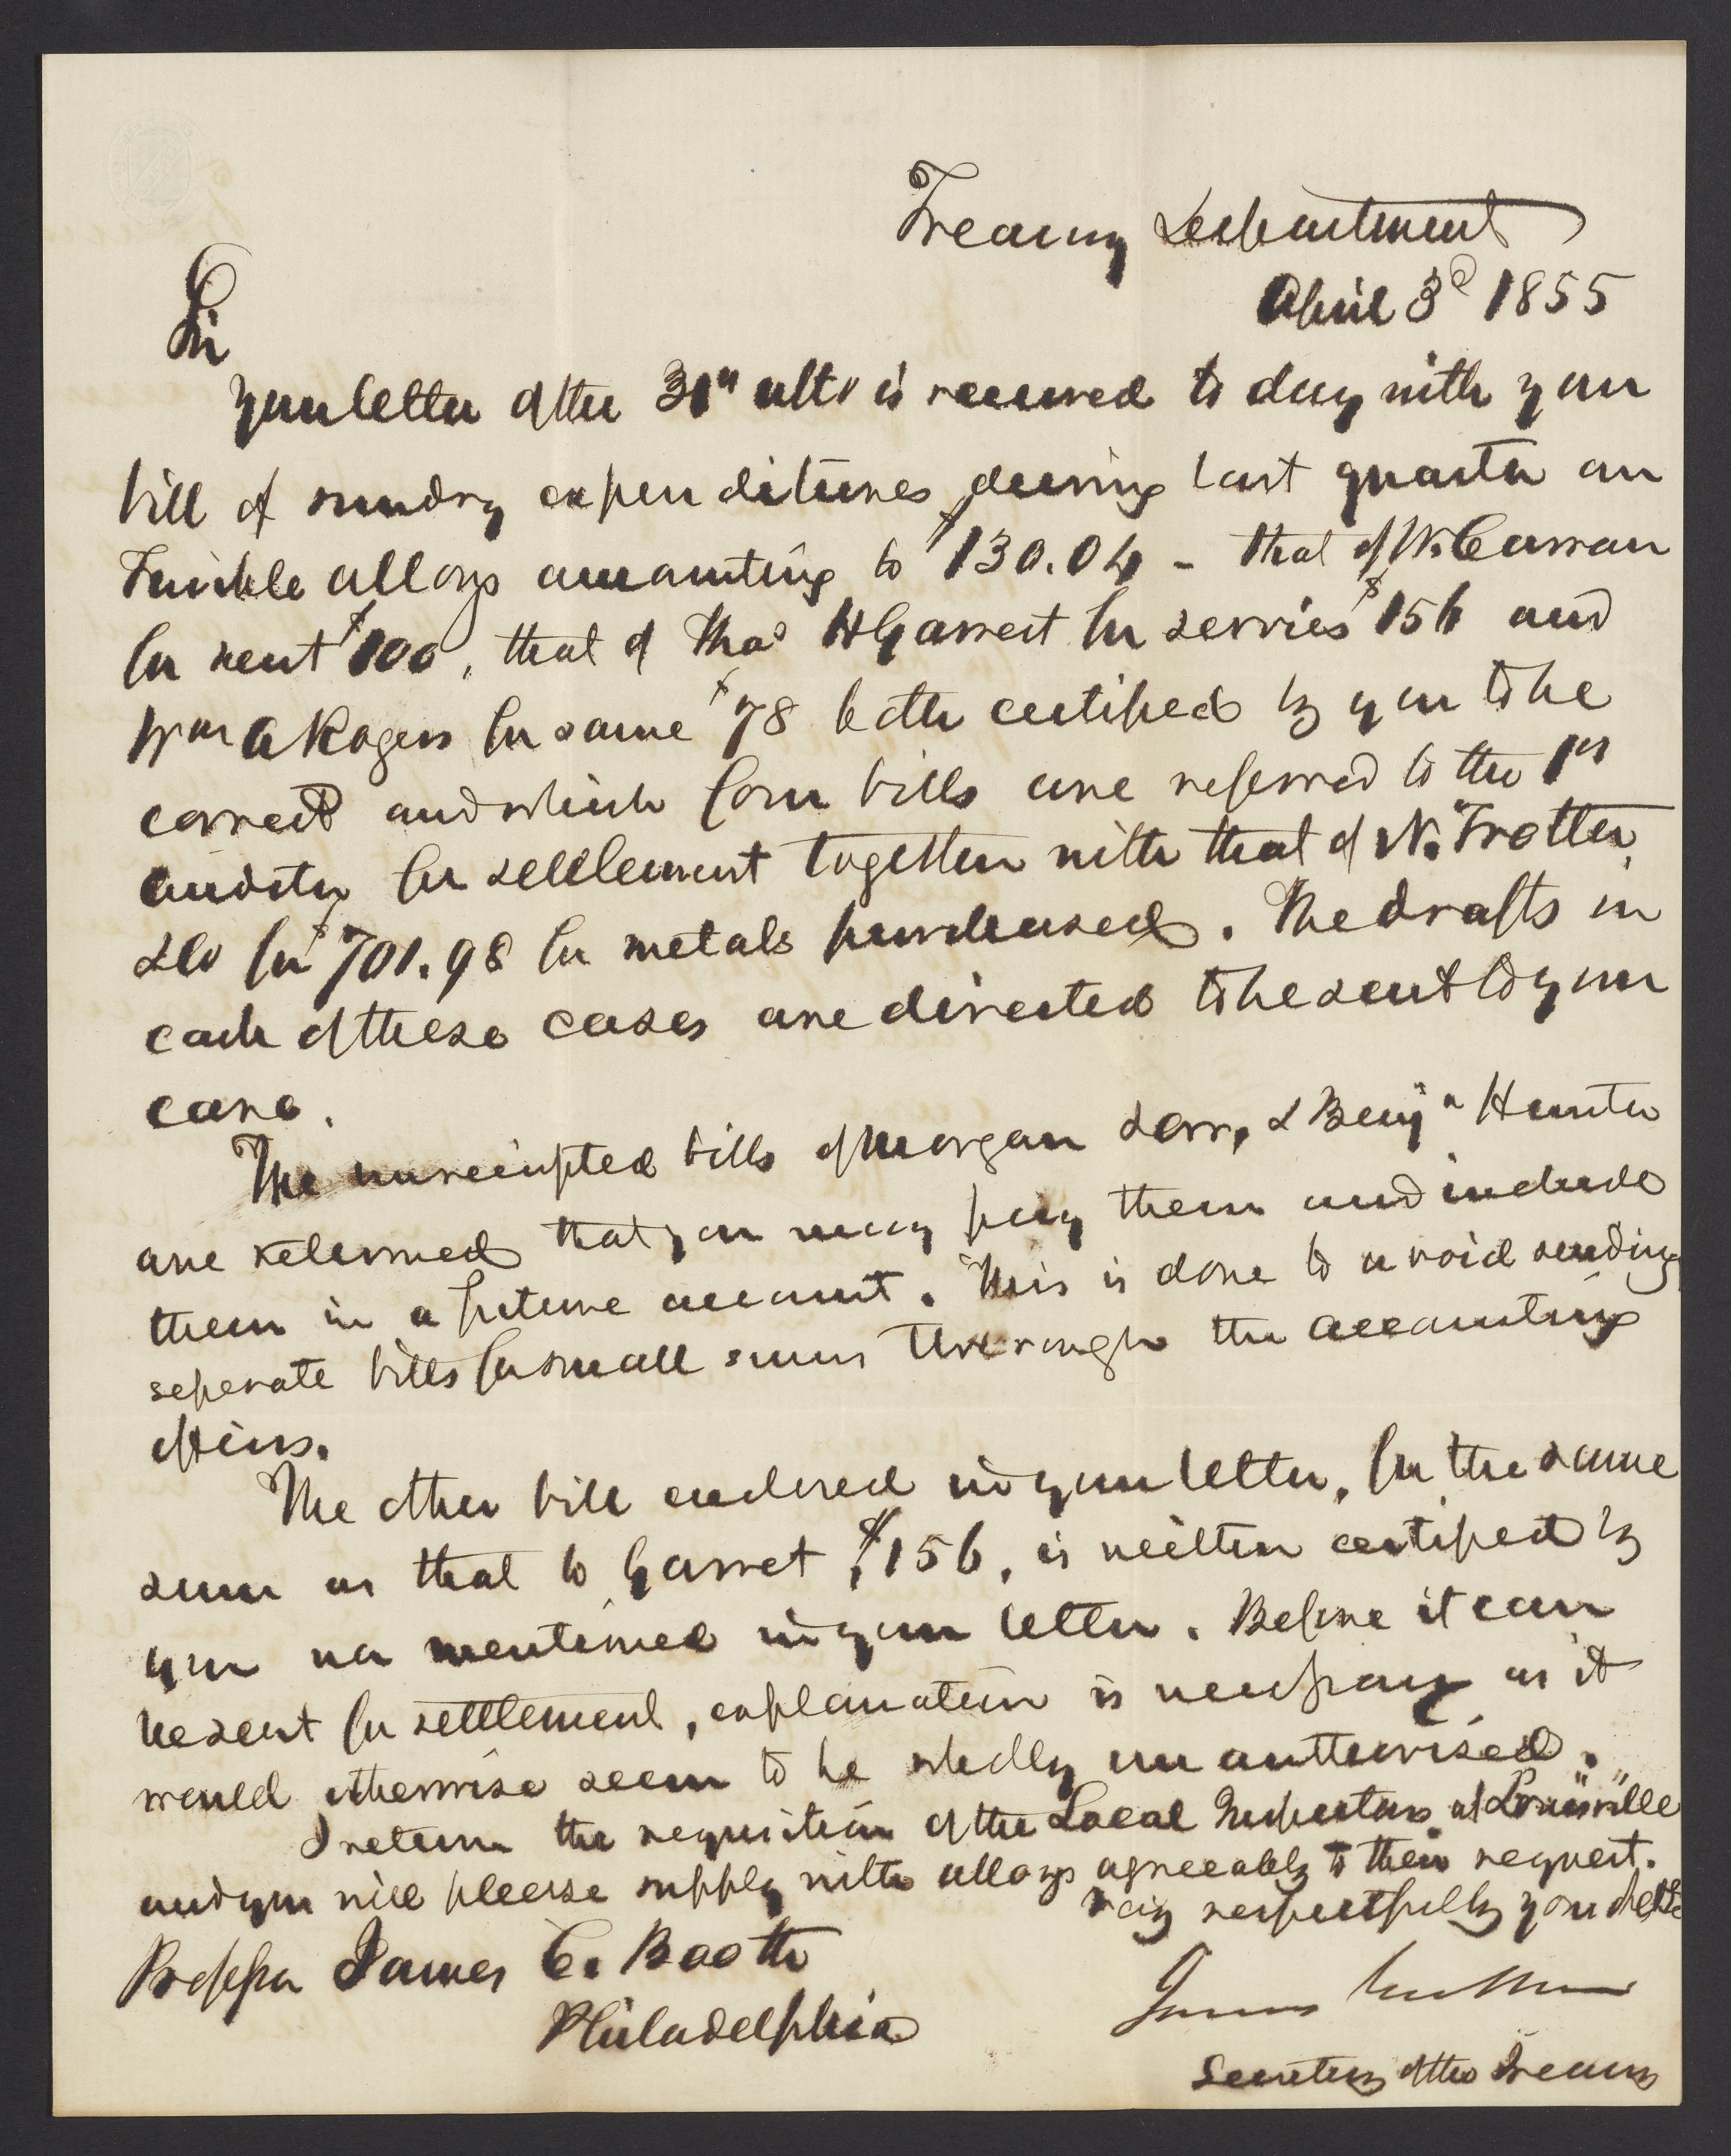 Treasury Department
April 3d 1855
Sir
Your letter of the 31st ulto is received to day with your
bill of sundry expenditures during last quarter on
Fusible alloys amounting to $130.04 - that of W. Curran
for rent $100, that of Thos H Garrett for services $156 and
Wm A Rogers for same $78 both certified by you to be
correct and which four bills are referred to the 1st
auditor for settlement together with that of N. Trotter
& Co for $701.98 for metals purchased. The drafts in
each of these cases are directed to be sent to your
care.
The unreceipted bills of Morgan & Orr, & Benjn Hunter
are returned that you may pay them and include
them in a future account. This is done to avoid sending
seperate bills for small sums through the accounting
offices.
The other bill enclosed in your letter, for the same
sum as that to Garret, $156, is neither certified by
you nor mentioned in your letter. Before it can
be sent for settlement, explanation is necessary as it
would otherwise seem to be wholly unauthorised.
I return the requisition of the Local Inspectors at Louisville
and you will please supply with alloys agreeably to their request.
Very respectfully your obt St
Professor James C. Booth
Philadelphia
James Guthrie
Secretary of the Treasury